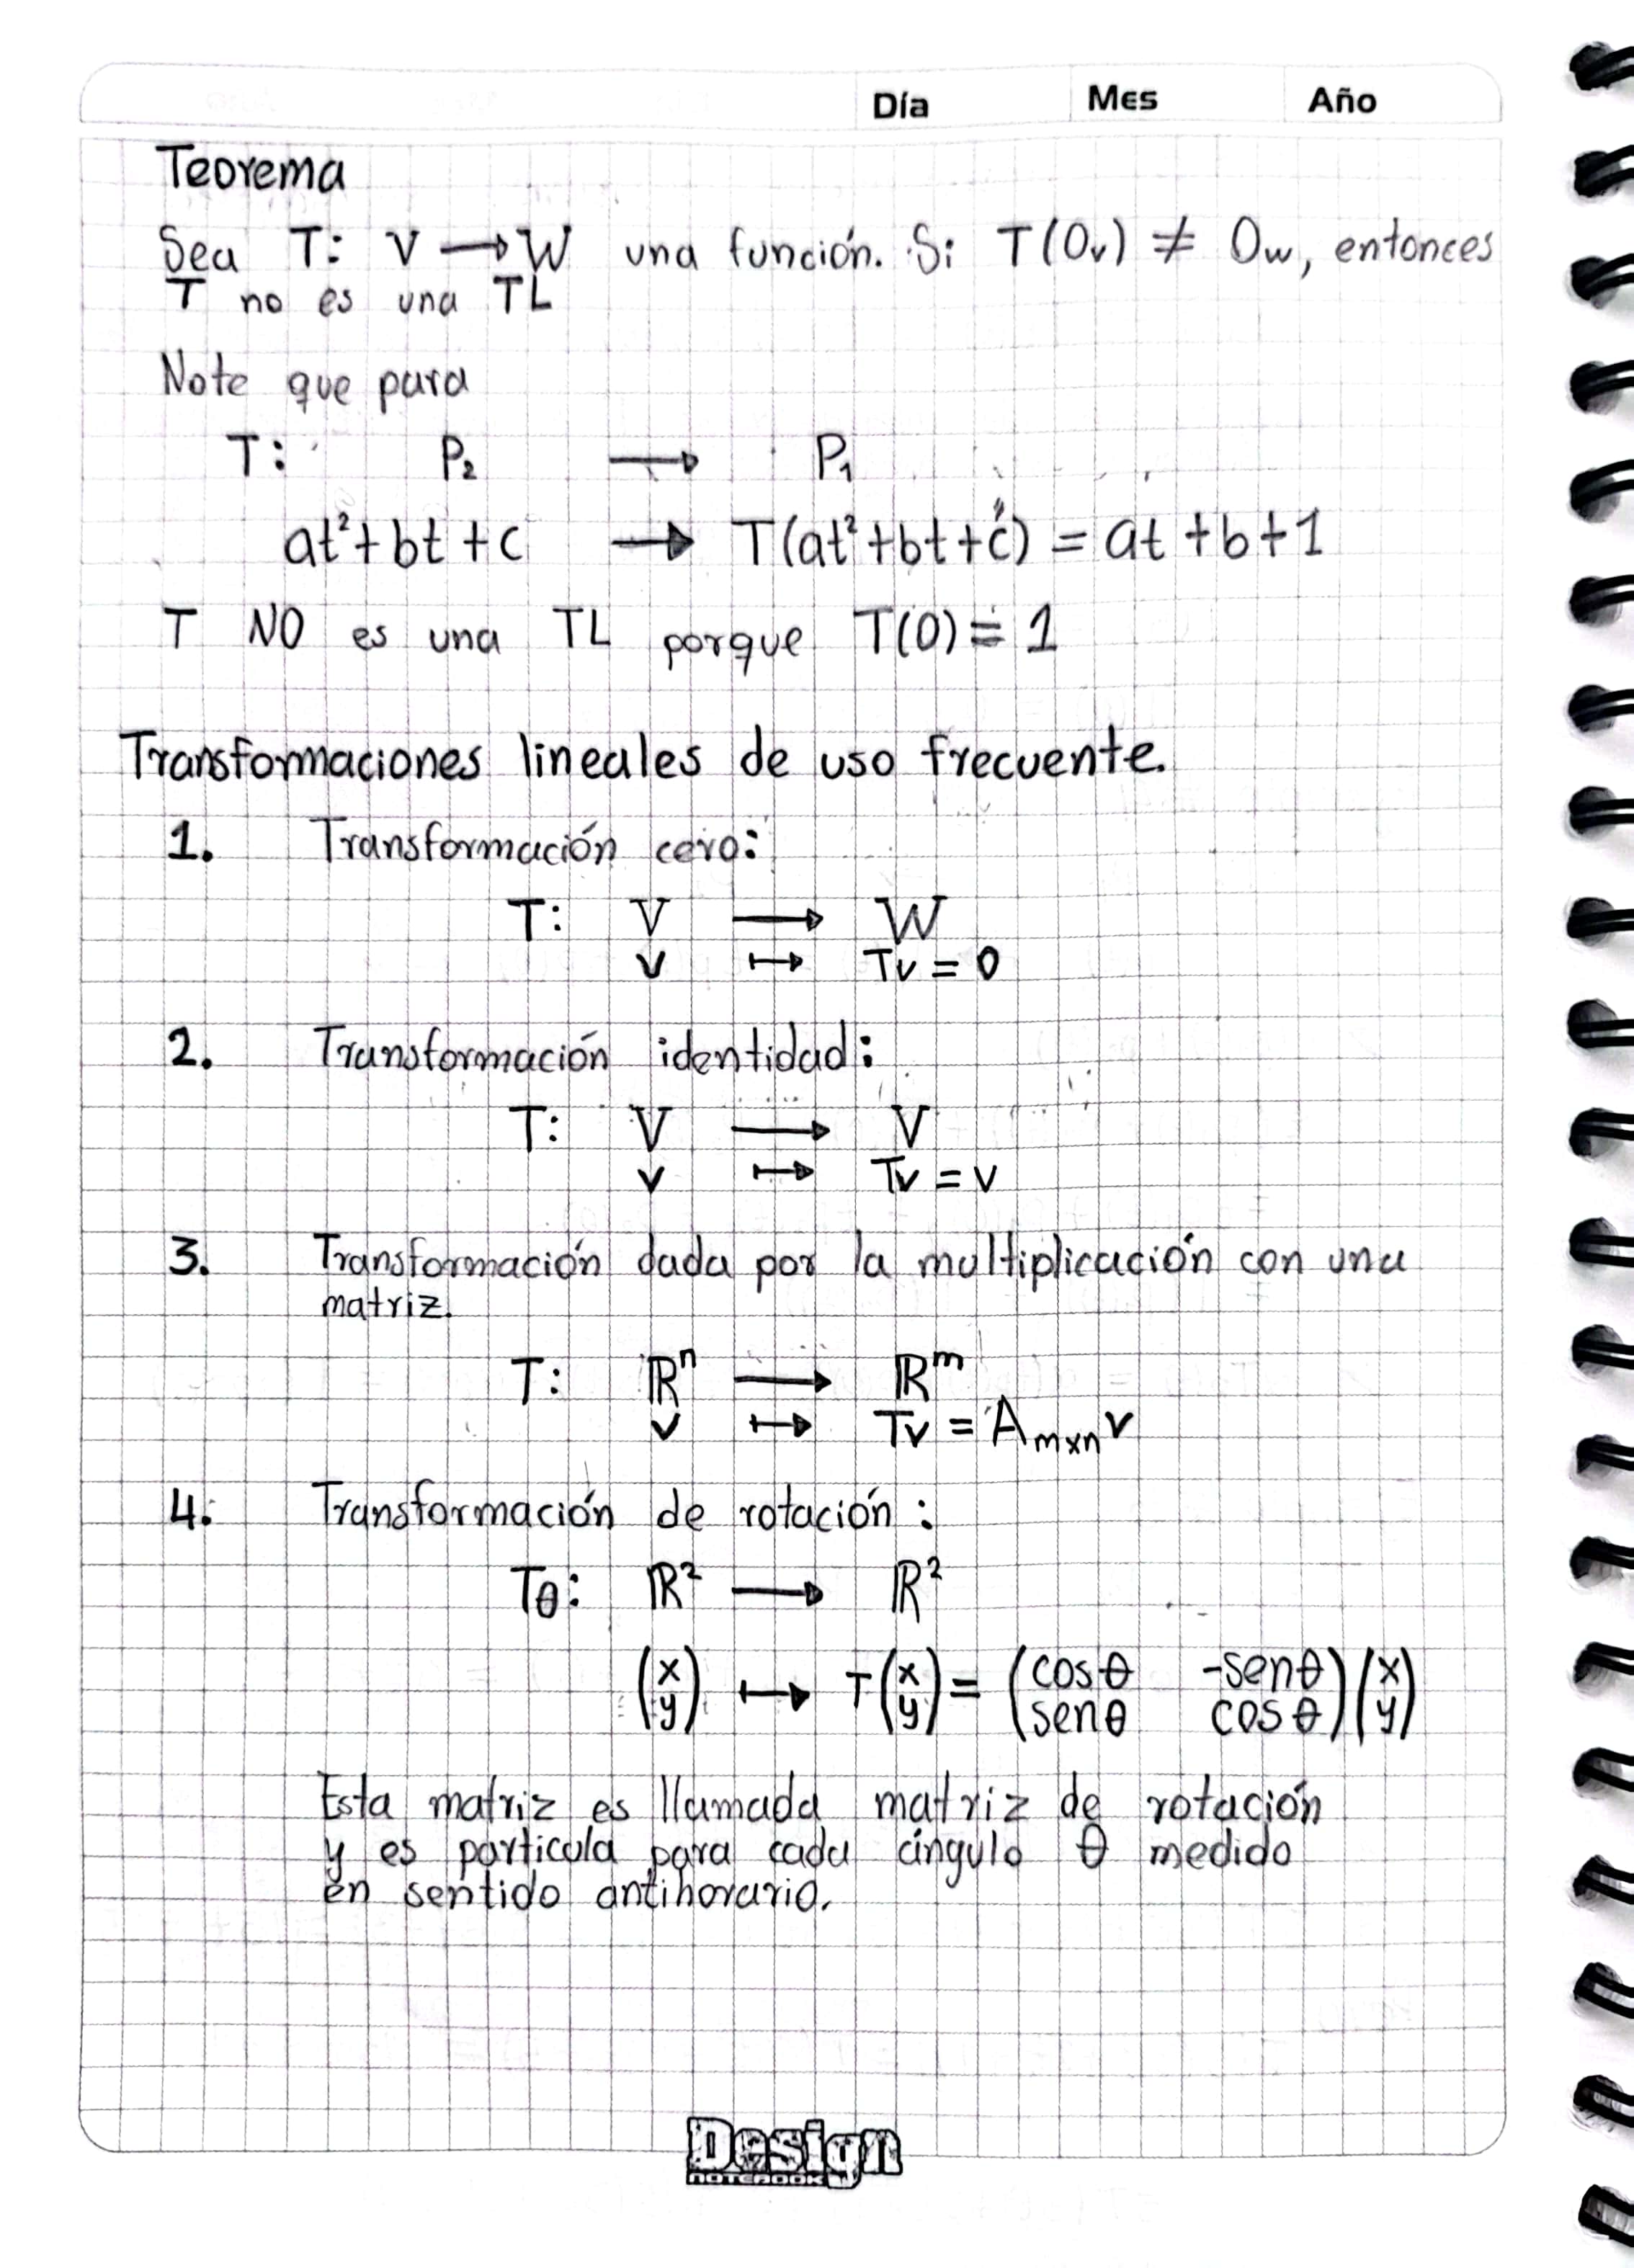 Día Mes Año
Teorema
Sea T: V → W una función. Si T(0v) ≠ 0w, entonces
T no es una TL
Note que para
T: P₂ → P₁
at²+bt+c → T(at²+bt+c) = at+b+1
T NO es una TL porque T(0) = 1
Transformaciones lineales de uso frecuente.
1. Transformación cero:
T: V → W
v ↦ Tv = 0
2. Transformación identidad:
T: V → V
v ↦ Tv = v
3. Transformación dada por la multiplicación con una
matriz.
T: ℝⁿ → ℝᵐ
v ↦ Tv = Aₘₓₙ v
4. Transformación de rotación:
Tθ: ℝ² → ℝ²
(x y) ↦ T(x y) = (cosθ -senθ senθ cosθ)(x y)
Esta matriz es llamada matriz de rotación
y es particula para cada ángulo θ medido
en sentido antihorario.
Design
NOTEBOOK